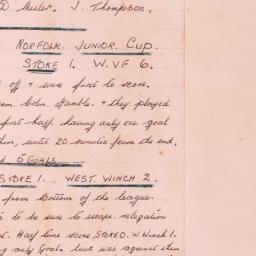 D Miller. J. Thompson.
NORFOLK. JUNIOR. CUP.
STOKE 1. W.V.F 6.
off & were first to score.
Gamble. & they played
first half having only one goal
until 20 minutes from the end.
5 GOALS.
STOKE 1. WEST. WINCH 2.
from Bottom of the league
to be sure to escape relegation
Half time score. STOKE 0. W. Winch 1.
only Goals luck was against them